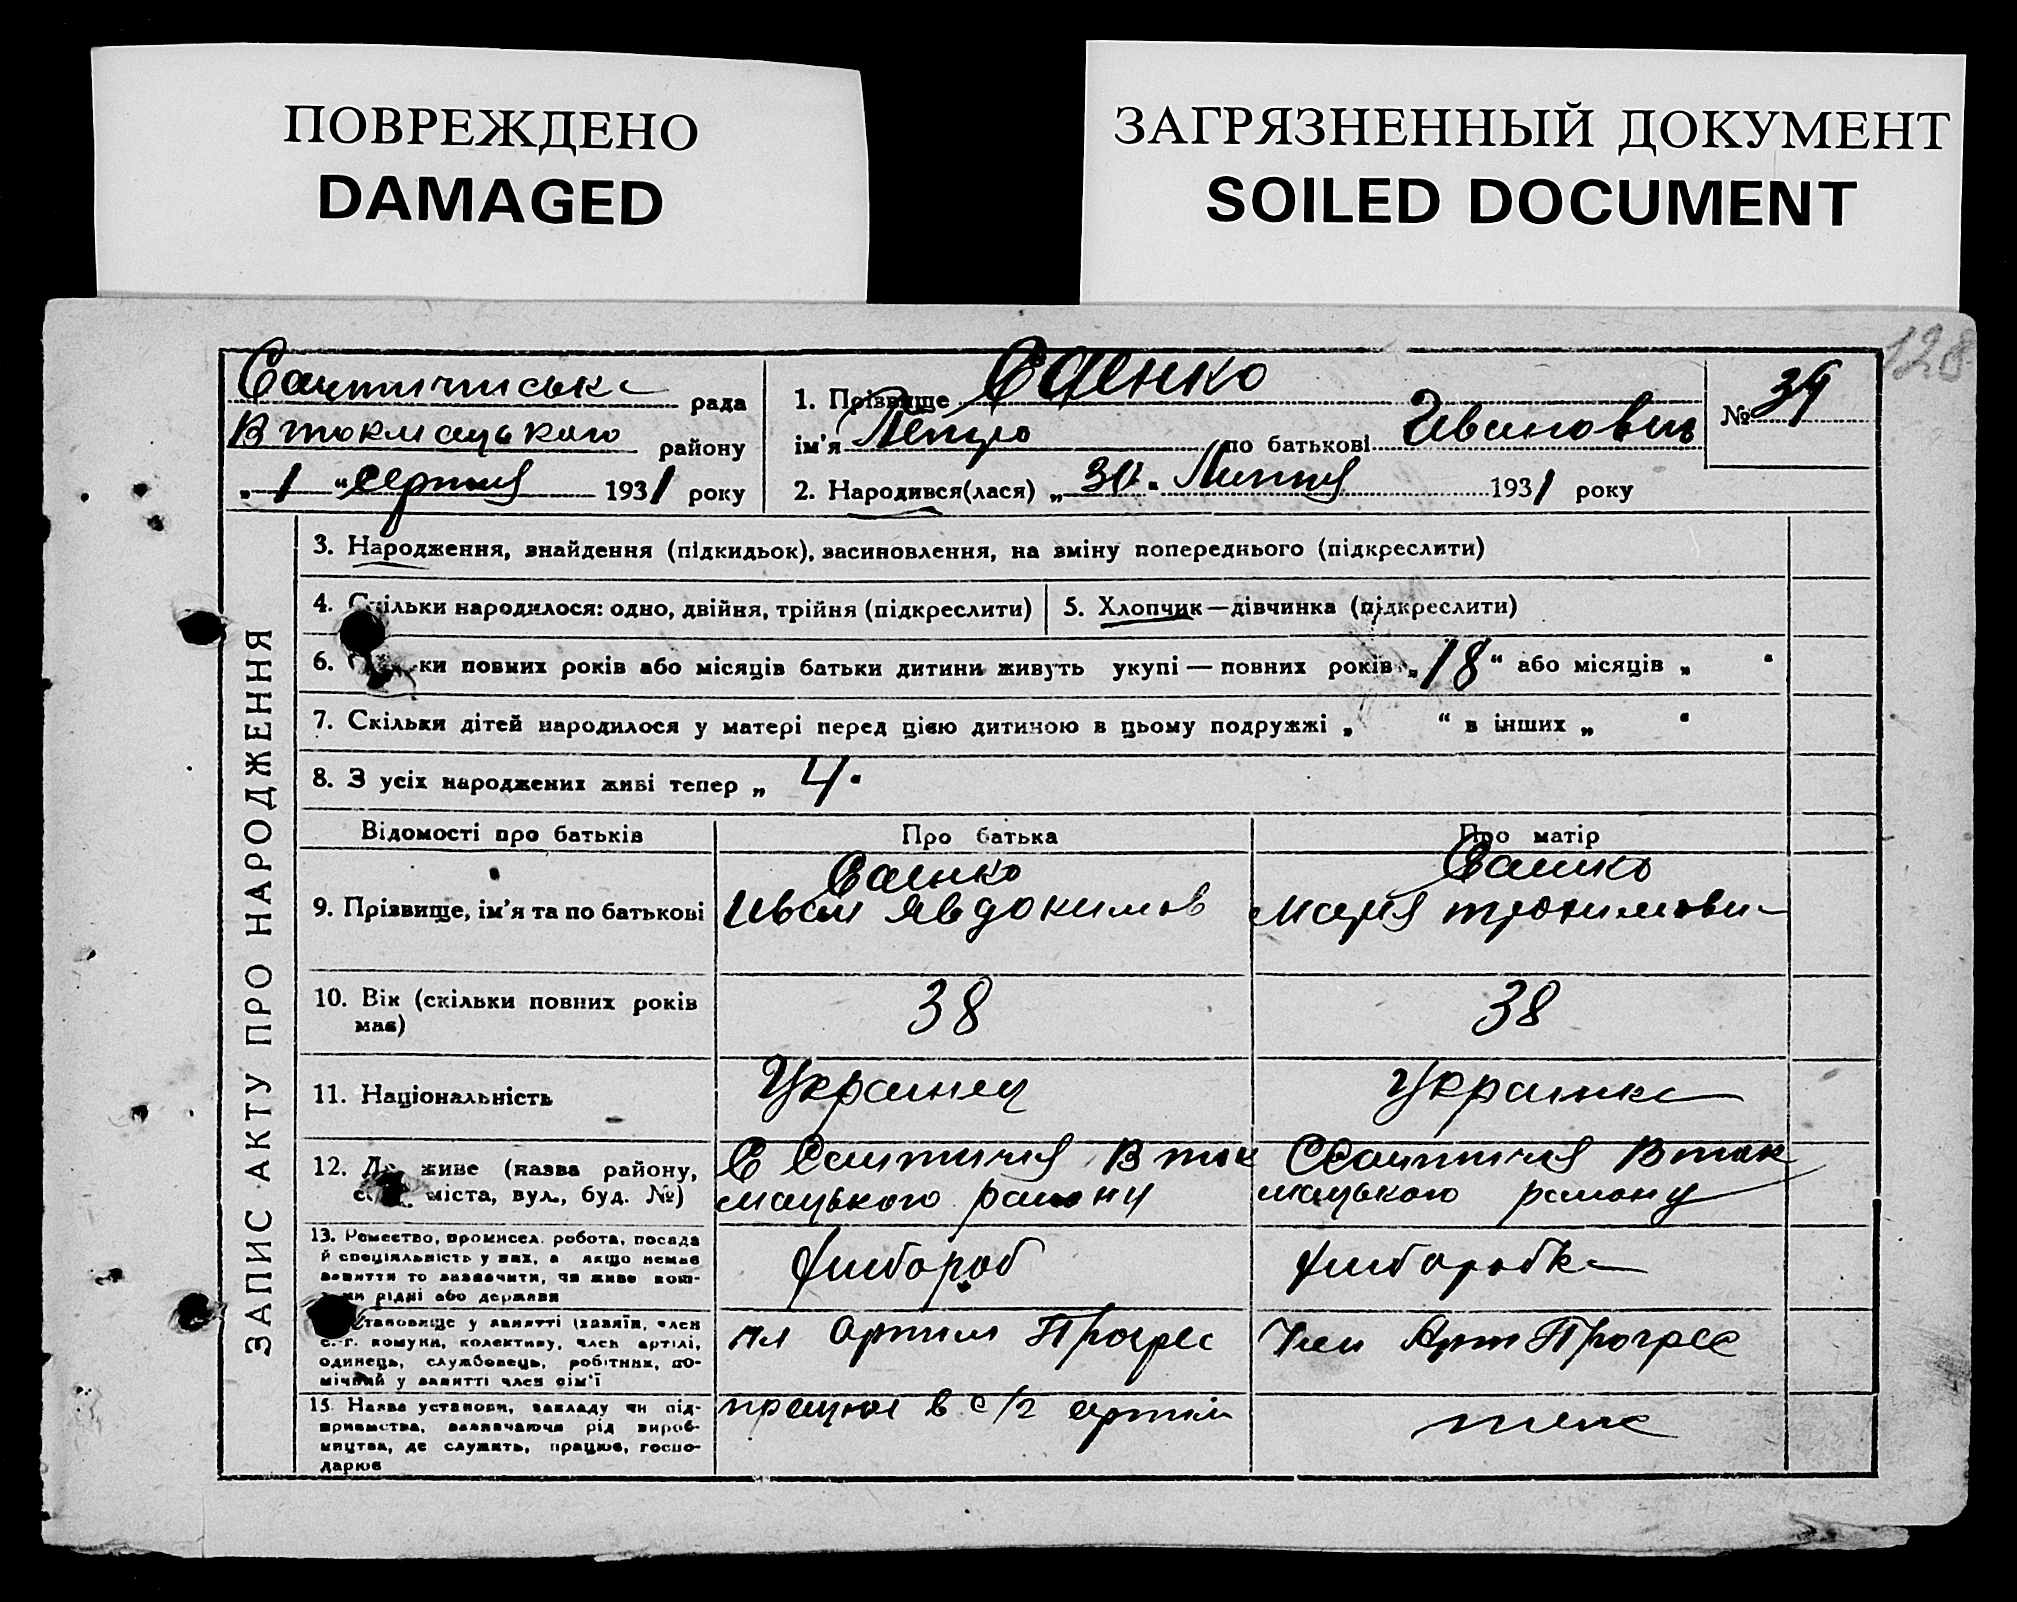 ПОВРЕЖДЕНО
DAMAGED
ЗАГРЯЗНЕННЫЙ ДОКУМЕНТ
SOILED DOCUMENT
128
рада
В токмацького району
„ 1 “ серпня 1931 року
1. Прізвище Саенко
ім'я Петро по батькові Иванович
№ 39
2. Народився(лася) „ 30 “ Липня 1931 року
ЗАПИС АКТУ ПРО НАРОДЖЕННЯ
3. Народження, знайдення (підкидьок), засиновлення, на зміну попереднього (підкреслити)
4. Скільки народилося: одно, двійня, трійня (підкреслити)
5. Хлопчик — дівчинка (підкреслити)
6. ки повних років або місяців батьки дитини живуть укупі — повних років „ 18 “ або місяців „ “
7. Скільки дітей народилося у матері перед цією дитиною в цьому подружжі „ “ в інших „ “
8. З усіх народжених живі тепер „ 4.
Відомості про батьків
Про батька
Про матір
9. Прізвище, ім'я та по батькові
Саенко
Иван Явдокимов
Саенко
Мария трохимови
10. Вік (скільки повних років
має)
38
38
11. Національність
Украинец
Украинка
12. Де живе (назва району,
міста, вул., буд. №)
В ток
мацького району
В ток
мацького району
13. Ремество, промисел, робота, посада
й спеціяльність у них, а якщо немає
заняття то зазначити, чи живе кош-
ми рідні або держави
хлибороб
хлиборобка
тановище у занятті (хазяїн, член
с.-г. комуни, колективу, член артілі,
одинець, службовець, робітник, по-
мічний у занятті член сім'ї
чл Артили Прогрес
Член Арт Прогрес
15. Назва установи, закладу чи під-
приємства, зазначаючи рід вироб-
ництва, де служить, працює, госпо-
дарює
працює в с/г артили
теж